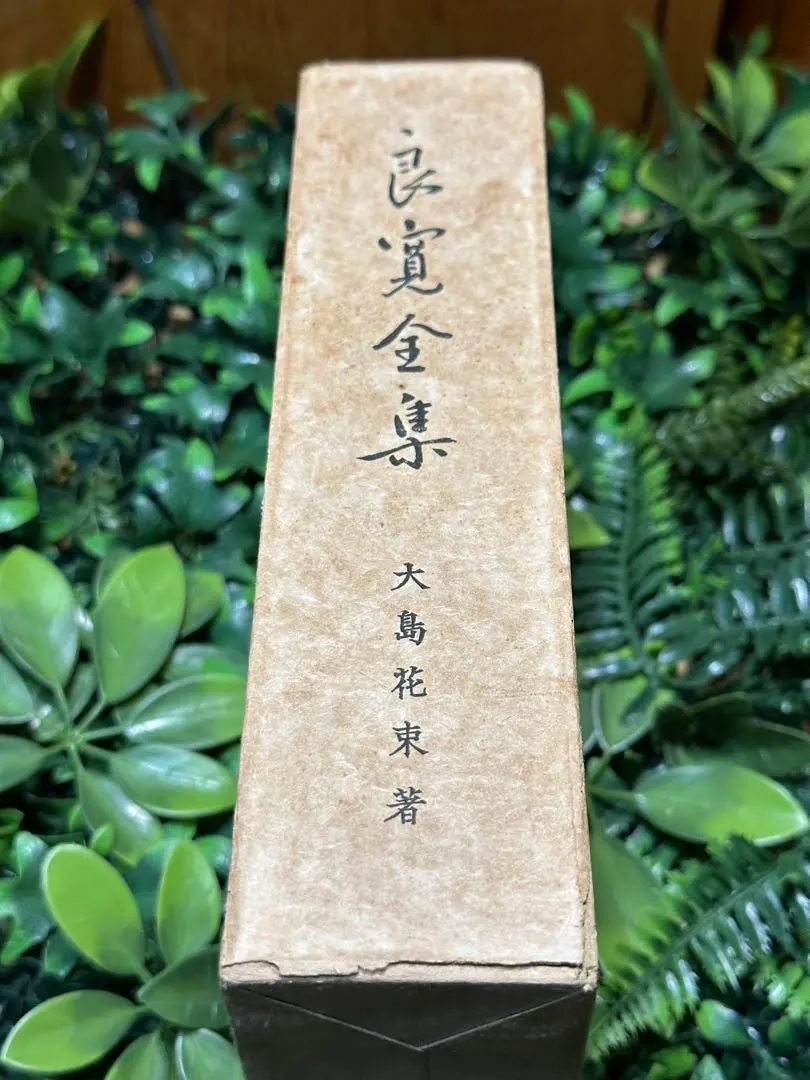 良寛全集
大島花束著